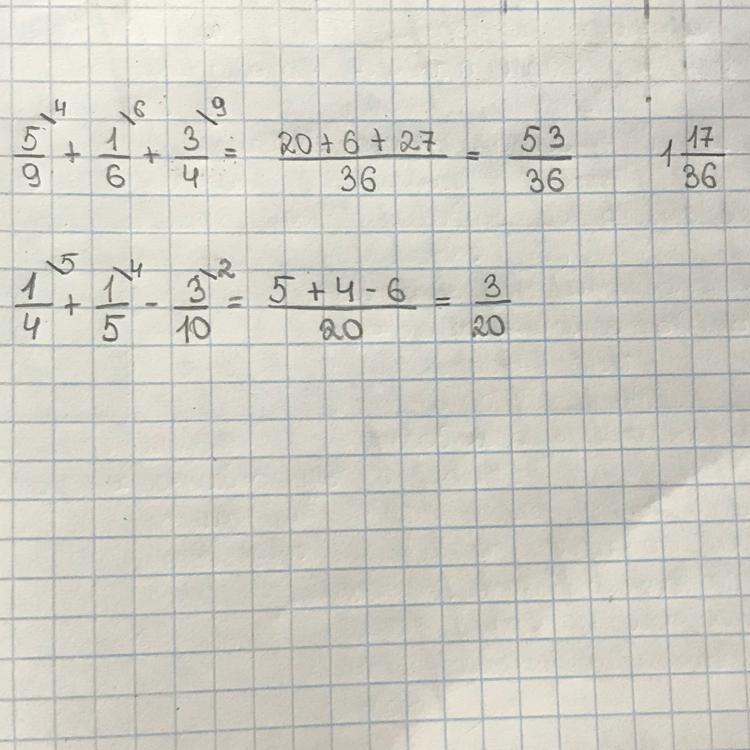 5/9 \4 + 1/6 \6 + 3/4 \9 = 20+6+27/36 = 53/36 1 17/36
1/4 \5 + 1/5 \4 - 3/10 \2 = 5+4-6/20 = 3/20